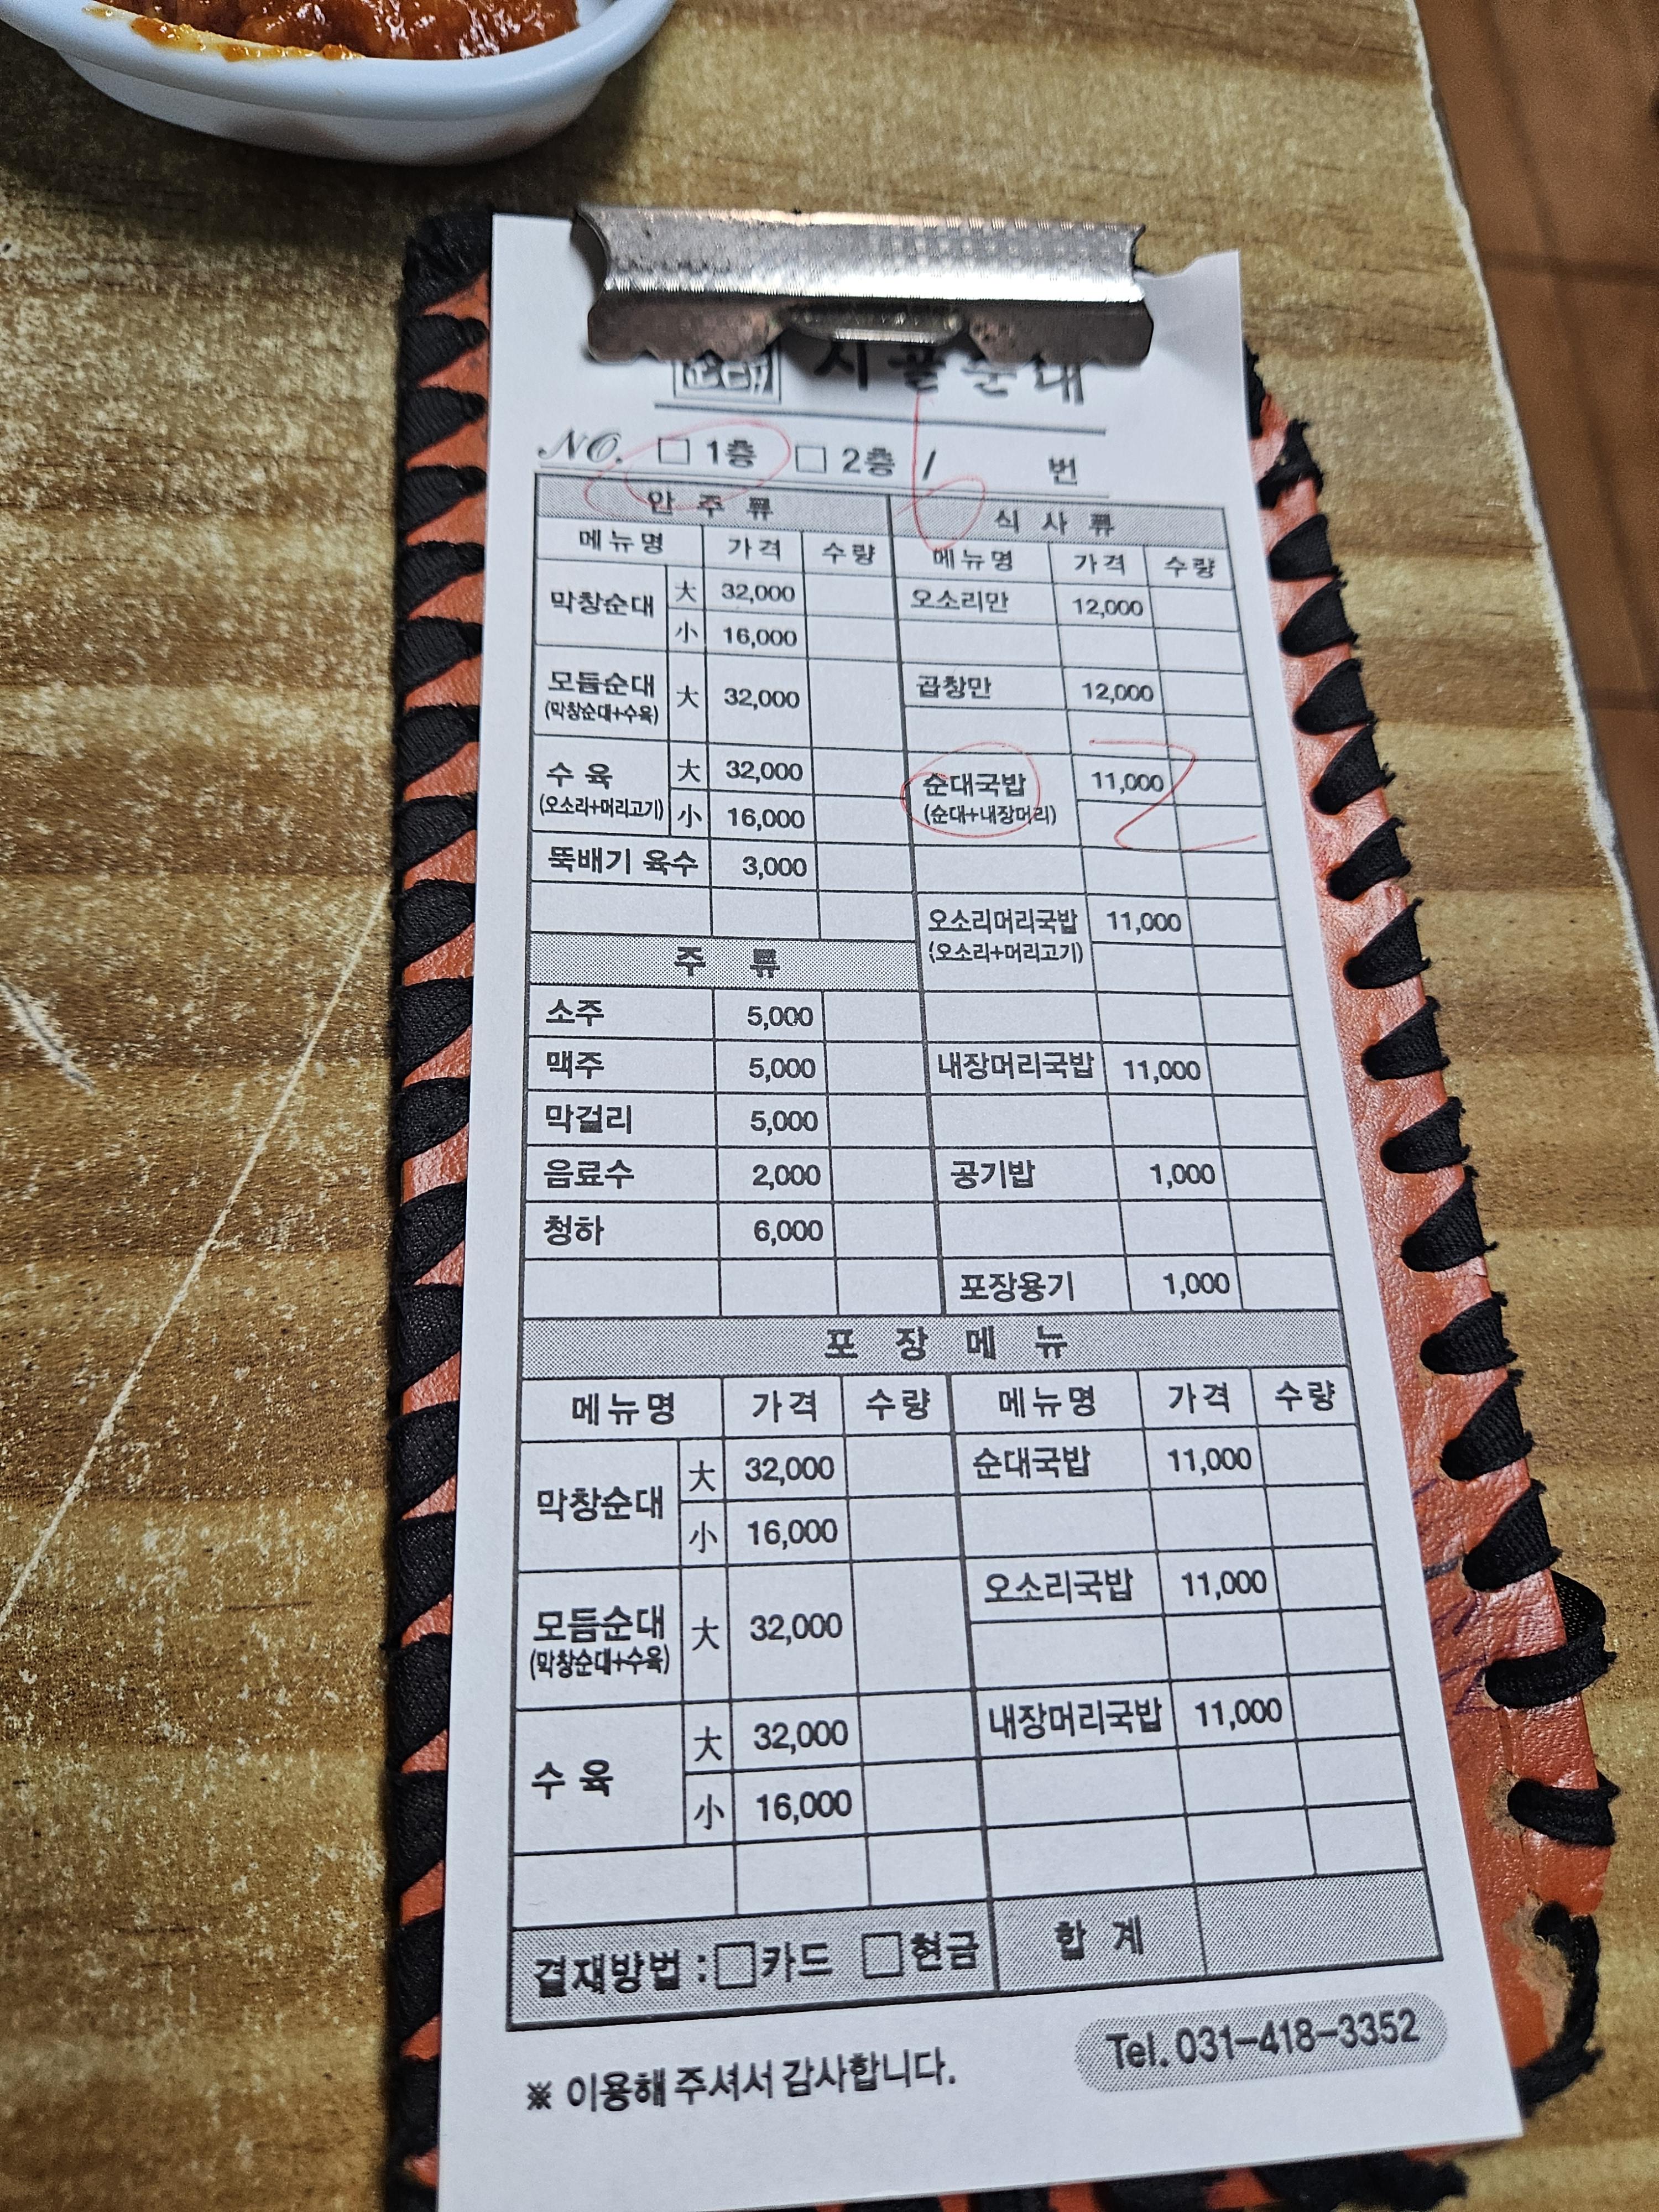 시골순대
NO. □ 1층 □ 2층 / 6 번
안 주 류 식 사 류
메뉴명 가격 수량 메뉴명 가격 수량
막창순대 大 32,000 오소리만 12,000
小 16,000
모듬순대 大 32,000 곱창만 12,000
(막창순대+수육)
수 육 大 32,000 순대국밥 11,000 2
(오소리+머리고기) 小 16,000 (순대+내장머리)
뚝배기 육수 3,000
오소리머리국밥 11,000
(오소리+머리고기)
주 류
소주 5,000
맥주 5,000 내장머리국밥 11,000
막걸리 5,000
음료수 2,000 공기밥 1,000
청하 6,000
포장용기 1,000
포 장 메 뉴
메뉴명 가격 수량 메뉴명 가격 수량
막창순대 大 32,000 순대국밥 11,000
小 16,000
모듬순대 大 32,000 오소리국밥 11,000
(막창순대+수육)
수 육 大 32,000 내장머리국밥 11,000
小 16,000
결재방법 : □카드 □현금 합 계
Tel. 031-418-3352
※ 이용해 주셔서 감사합니다.